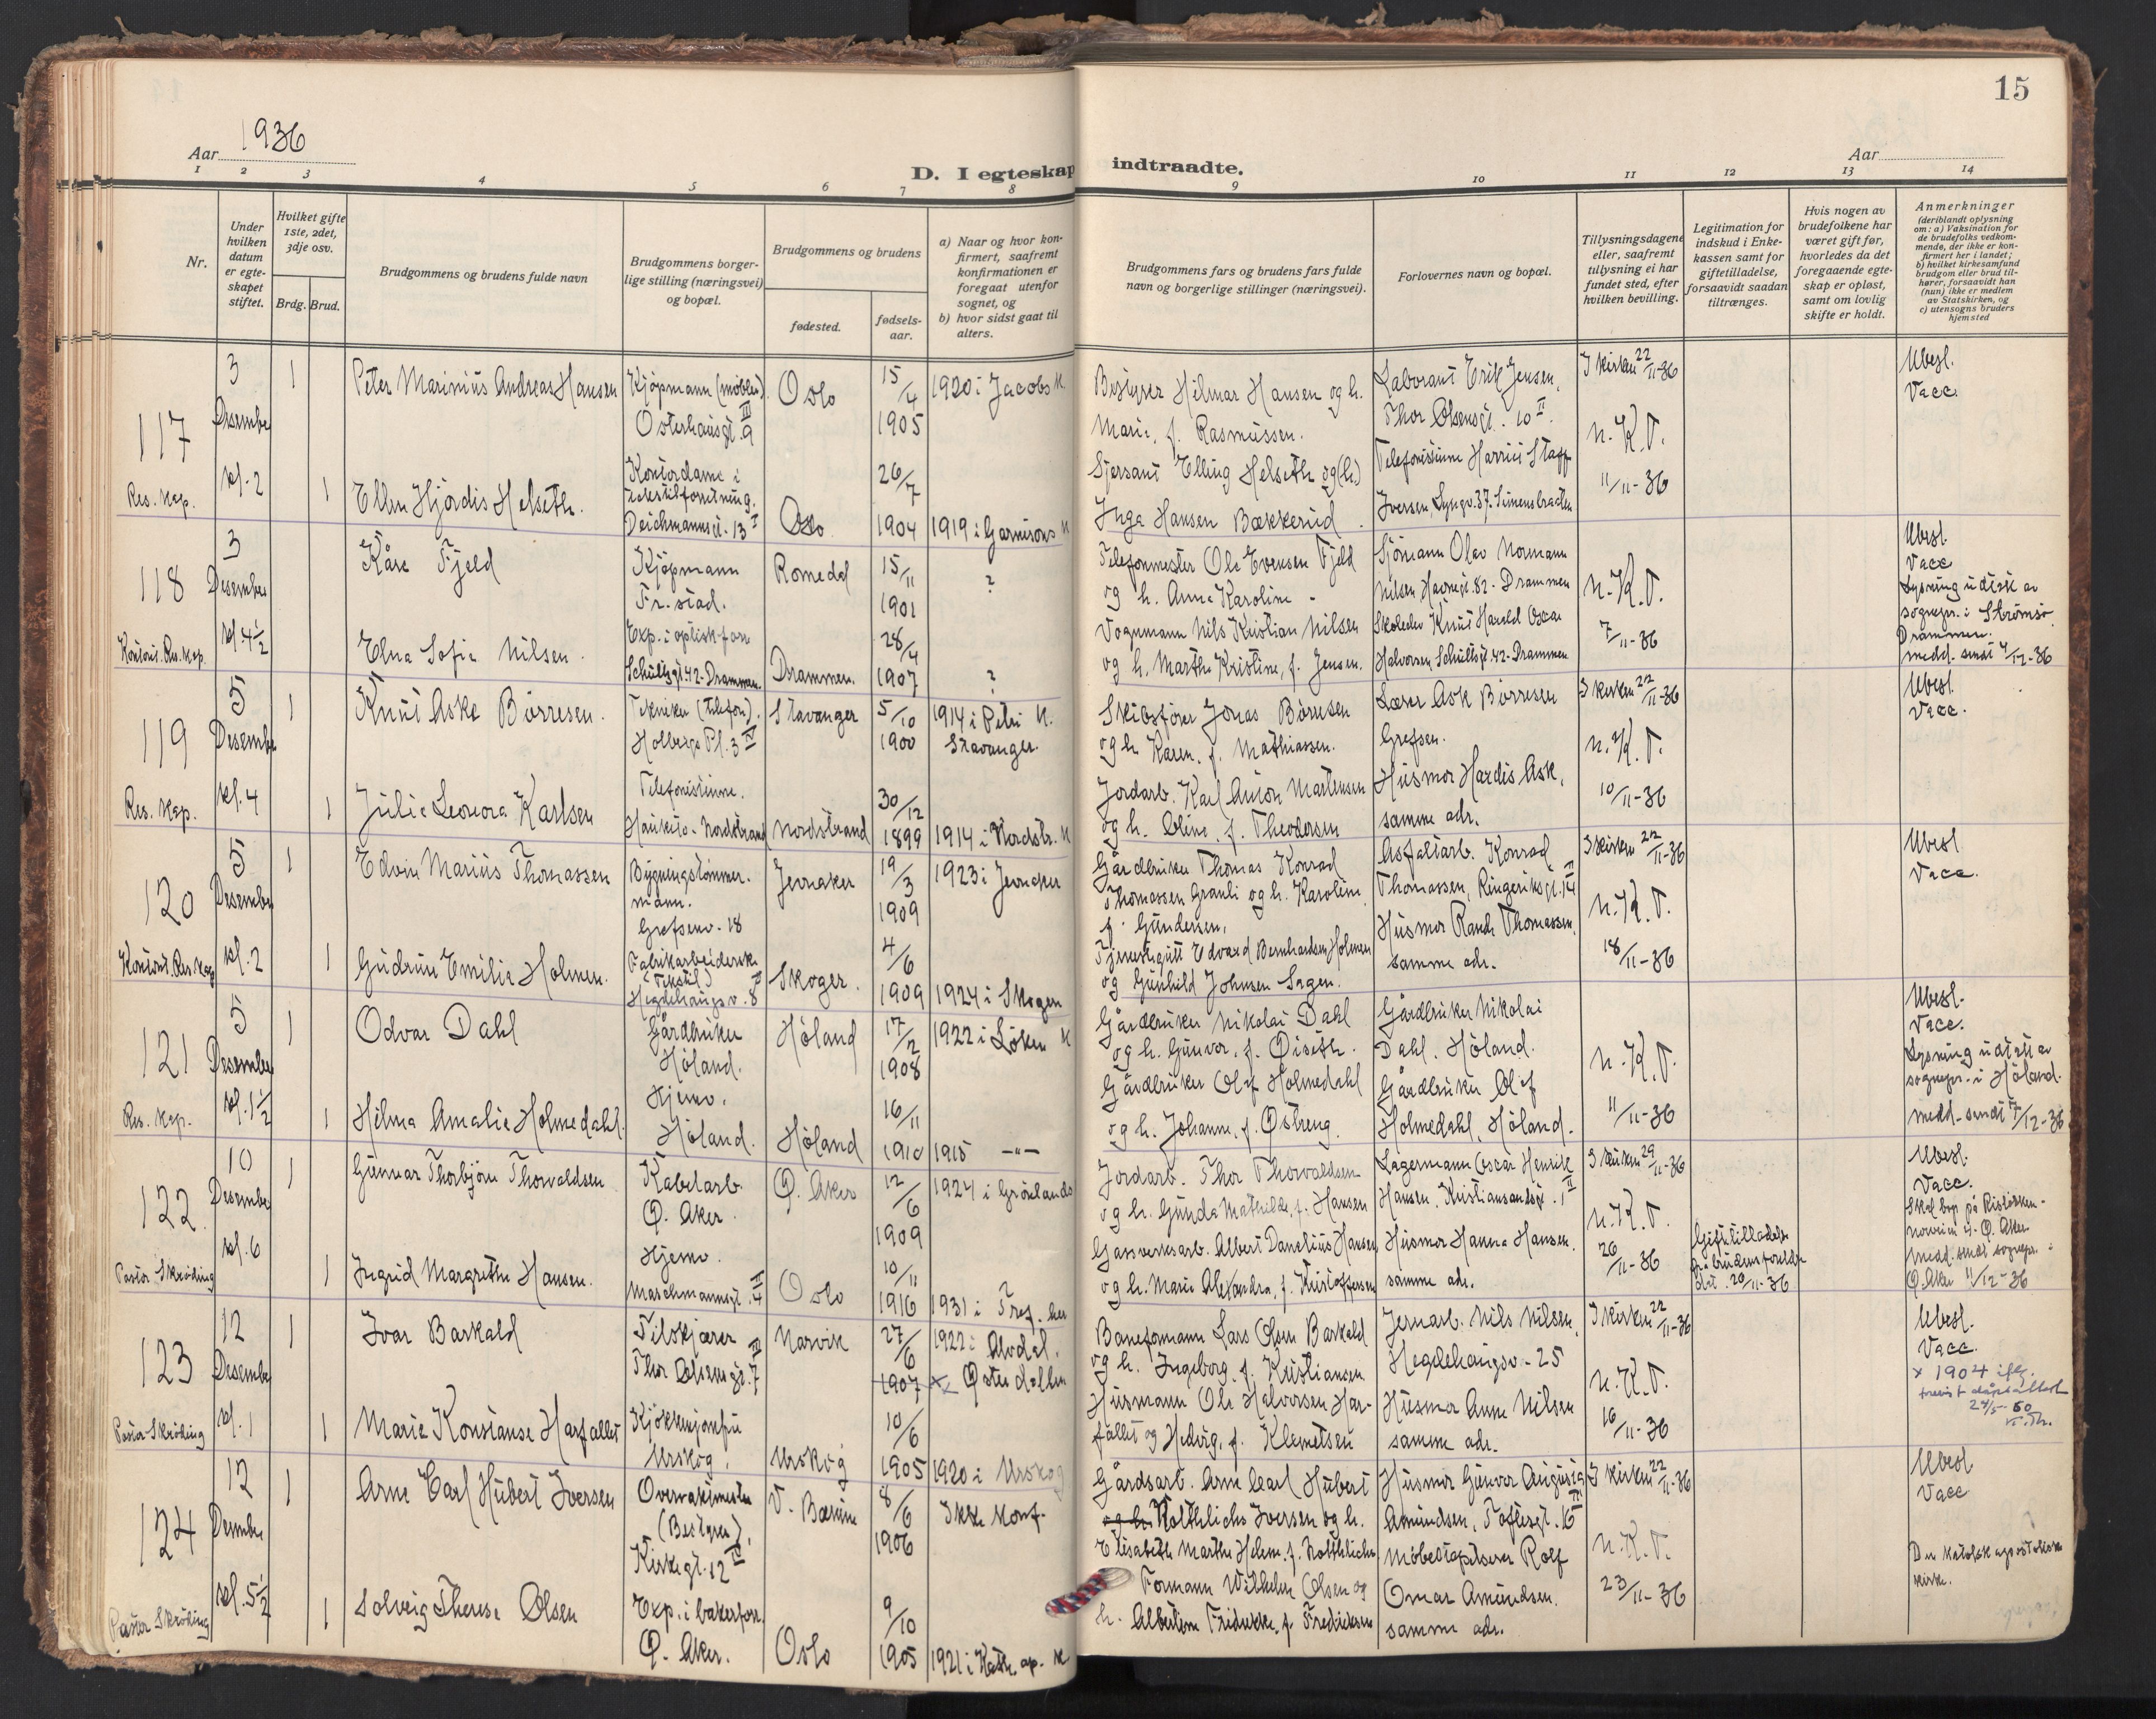 15
Aar 1936
Aar
D. I egteskap indtraadte.
1 2 3 4 5 6 7 8 9 10 11 12 13 14
Nr.
Under
hvilken
datum
er egte-
skapet
stiftet.
Hvilket gifte
1ste, 2det,
3dje osv.
Brdg. Brud.
Brudgommens og brudens fulde navn
Brudgommens borger-
lige stilling (næringsvei)
og bopæl.
Brudgommens og brudens
fødested.
fødsels-
aar.
a) Naar og hvor kon-
firmert, saafremt
konfirmationen er
foregaat utenfor
sognet, og
b) hvor sidst gaat til
alters.
Brudgommens fars og brudens fars fulde
navn og borgerlige stillinger (næringsvei).
Forlovernes navn og bopæl.
Tillysningsdagene
eller, saafremt
tillysning ei har
fundet sted, efter
hvilken bevilling.
Legitimation for
indskud i Enke-
kassen samt for
giftetilladelse,
forsaavidt saadan
tiltrænges.
Hvis nogen av
brudefolkene har
været gift før,
hvorledes da det
foregaaende egte-
skap er opløst,
samt om lovlig
skifte er holdt.
Anmerkninger
(deriblandt oplysning
om: a) Vaksination for
de brudefolks vedkom-
mende, der ikke er kon-
firmert her i landet;
b) hvilket kirkesamfund
brudgom eller brud til-
hører, forsaavidt han
(hun) ikke er medlem
av Statskirken, og
c) utensogns bruders
hjemsted
117
Res. kap.
3
Desember
kl. 2
1
Peter Marinius Andreas Hansen
Kjøpmann (møbler)
Osterhausgt. 9 III
Oslo
15/4
1905
1920 i Jacobs K.
Bestyrer Hilmar Hansen og h.
Marie, f. Rasmussen.
Laborant Erik Jensen,
Thor Olsensgt. 10 II.
I kirken 22/11-36
n. K. V.
11/11-36
Ubesl.
Vacc.
1
Ellen Hjördis Helseth.
Kontordame i
Deichmannsgt. 13 I
Oslo
26/7
1904
1919 i Garnisons K
Sjersant Elling Helseth og (h.)
Inga Hansen Bækkerud
Telefonistinne Harriet Stapp
Iversen, Lyngv. 37. Simensbraaten
118
Konst. Res. kap.
3
Desember
kl. 4½
1
Kåre Fjeld
Kjøpmann
Fr. stad.
Romedal
15/11
1901
?
Telefonmester Ole Evensen Fjeld
og h. Anne Karoline -
Sjömann Olav Normann
Nilsen, Havnegt. 82 - Drammen
n. K. V.
7/11-36
Ubesl.
Vacc
Lysning utstedt av
sognepr. i Strömsö
Drammen.
medd. sendt 4/12-36
Elna Sofie Nilsen.
Exp. i optisk forr.
Schultzgt. 42 - Drammen.
Drammen.
28/4
1907
?
Vognmann Nils Kristian Nilsen
og h. Marthe Kristine, f. Jensen.
Skoleelev Knut Harald Oscar
Halvorsen, Schultzgt. 42 - Drammen
119
Res. kap.
5
Desember
kl. 4
1
Knut Aske Börresen.
Tekniker (telefon).
Holbergs Pl. 3 IV
Stavanger
5/10
1900
1914 i Petri K.
Stavanger.
Skibsförer Jonas Börresen
og h. Karen, f. Mathiassen.
Lærer Ask Börresen
Grefsen.
I kirken 22/11-36
n. K. V.
10/11-36
Ubesl.
Vacc.
1
Julie Leonora Karlsen
Telefonistinne.
Hauketo - Nordstrand
Nordstrand
30/12
1899
1914 i Nordstr. K
Jordarb. Karl Anton Martinsen
og h. Oline, f. Theodorsen
Husmor Hardis Ask,
samme adr.
120
Konst. Res. kap
5
Desember
kl. 2
1
Edvin Marius Thomassen
Bygningstömmer-
mann.
Grefsenv. 18
Jevnaker
19/3
1909
1923 i Jevnaker
Gårdbruker Thomas Konrad
Thomassen Granli og h. Karoline
f. Gundersen,
Asfaltarb. Konrad
Thomassen, Ringeriksgt. 14 II
I kirken 22/11-36
n. K. V.
18/11-36
Ubesl
Vacc.
1
Gudrun Emilie Holmen.
Fabrikarbeiderske
(Tekstil)
Hegdehaugsv. 8
Skoger.
4/6
1909
1924 i Skoger
Edvard Bernhardsen Holmen
og Gunhild Johnsen Sagen.
Husmor Randi Thomassen,
samme adr.
121
Res. kap.
5
Desember
kl. 1½
1
Odvar Dahl
Gårdbruker
Höland.
Höland
17/2
1908
1922 i Löken K
Gårdbruker Nikolai Dahl
og h. Gunvor, f. Öiseth.
Gårdbruker Nikolai
Dahl, Höland.
n. K. V.
11/11-36
Ubesl.
Vacc.
Lysning utstedt av
sognepr. i Höland.
medd. sendt 7/12-36
1
Helma Amalie Holmedahl.
Hjemv.
Höland.
Höland
16/11
1910
1915 —"—
Gårdbruker Olaf Holmedahl
og h. Johanne, f. Østreng.
Gårdbruker Olaf
Holmedahl, Höland.
122
Pastor Skröding
10
Desember
kl. 6
1
Gunnar Thorbjörn Thorvaldsen
Kabelarb.
Ö. Aker.
Ö. Aker
12/6
1909
1924 i Grönlands
Jordarb. Thor Thorvaldsen
og h. Gunda Mathilde, f. Hansen
Lagermann Oscar Henrik
Hansen, Kristiansandsgt. 1 II
I kirken 29/11-36
n. K. V.
26/11-36
Giftetilladelse
fra brudens foreldre
dat. 20/11-36
Ubesl.
Vacc.
Medd. sendt sognepr. i
Ö. Aker 11/12-36
1
Ingrid Margrethe Hansen.
Hjemv.
Maschmannsgt.
Oslo
10/11
1916
1931 i Tref. her
Gassverksarb. Albert Danelius Hansen
og h. Marie Alexandra, f. Kristoffersen
Husmor Hanna Hansen,
samme adr.
123
Pastor Skröding
12
Desember
kl. 1
1
Ivar Barkald
Filskjærer
Thor Olsensgt. 7 III
Narvik
27/6
1907
1922 i Alvdal.
Østerdallen
Baneformann Lars Olsen Barkald
og h. Ingeborg, f. Kristiansen
Jernarb. Nils Nilsen,
Hegdehaugsv. 25
I kirken 22/11-36
n. K. V.
16/11-36
Ubesl.
Vacc.
x 1904 ifg.
1
Marie Konstanse Harfallet
Kjøkkenjomfru
Urskog.
Urskog
10/6
1905
1920 i Urskog
Husmann Ole Halvorsen Har-
fallet og Hedvig, f. Klemetsen
Husmor Anne Nilsen
samme adr.
124
Pastor Skröding
12
Desember
kl. 5½
1
Arne Carl Hubert Iversen
Overvaktmester
(Bestyrer),
Kirkegt. 12 IV
V. Bærum
8/6
1906
Ikke konf.
Gårdsarb. Arne Carl Hubert
og h. Kotthlichs Iversen og h.
Elisabeth Marthe Helene, f. Kotthlichs
Husmor Gunvor Augusta
Amundsen, Toftesgt. 16
I kirken 22/11-36
n. K. V.
23/11-36
Ubesl
Vacc
Den katolsk apostoliske
kirke.
1
Solveig Therese Olsen
Exp. i bakerforr.
Ö. Aker.
Oslo
9/10
1905
1921 i Kath. ap. K
Formann Wilhelm Olsen og
h. Albertine Fredrikke, f. Fredriksen
Møbeltapetserer Rolf
Omar Amundsen.
samme adr.